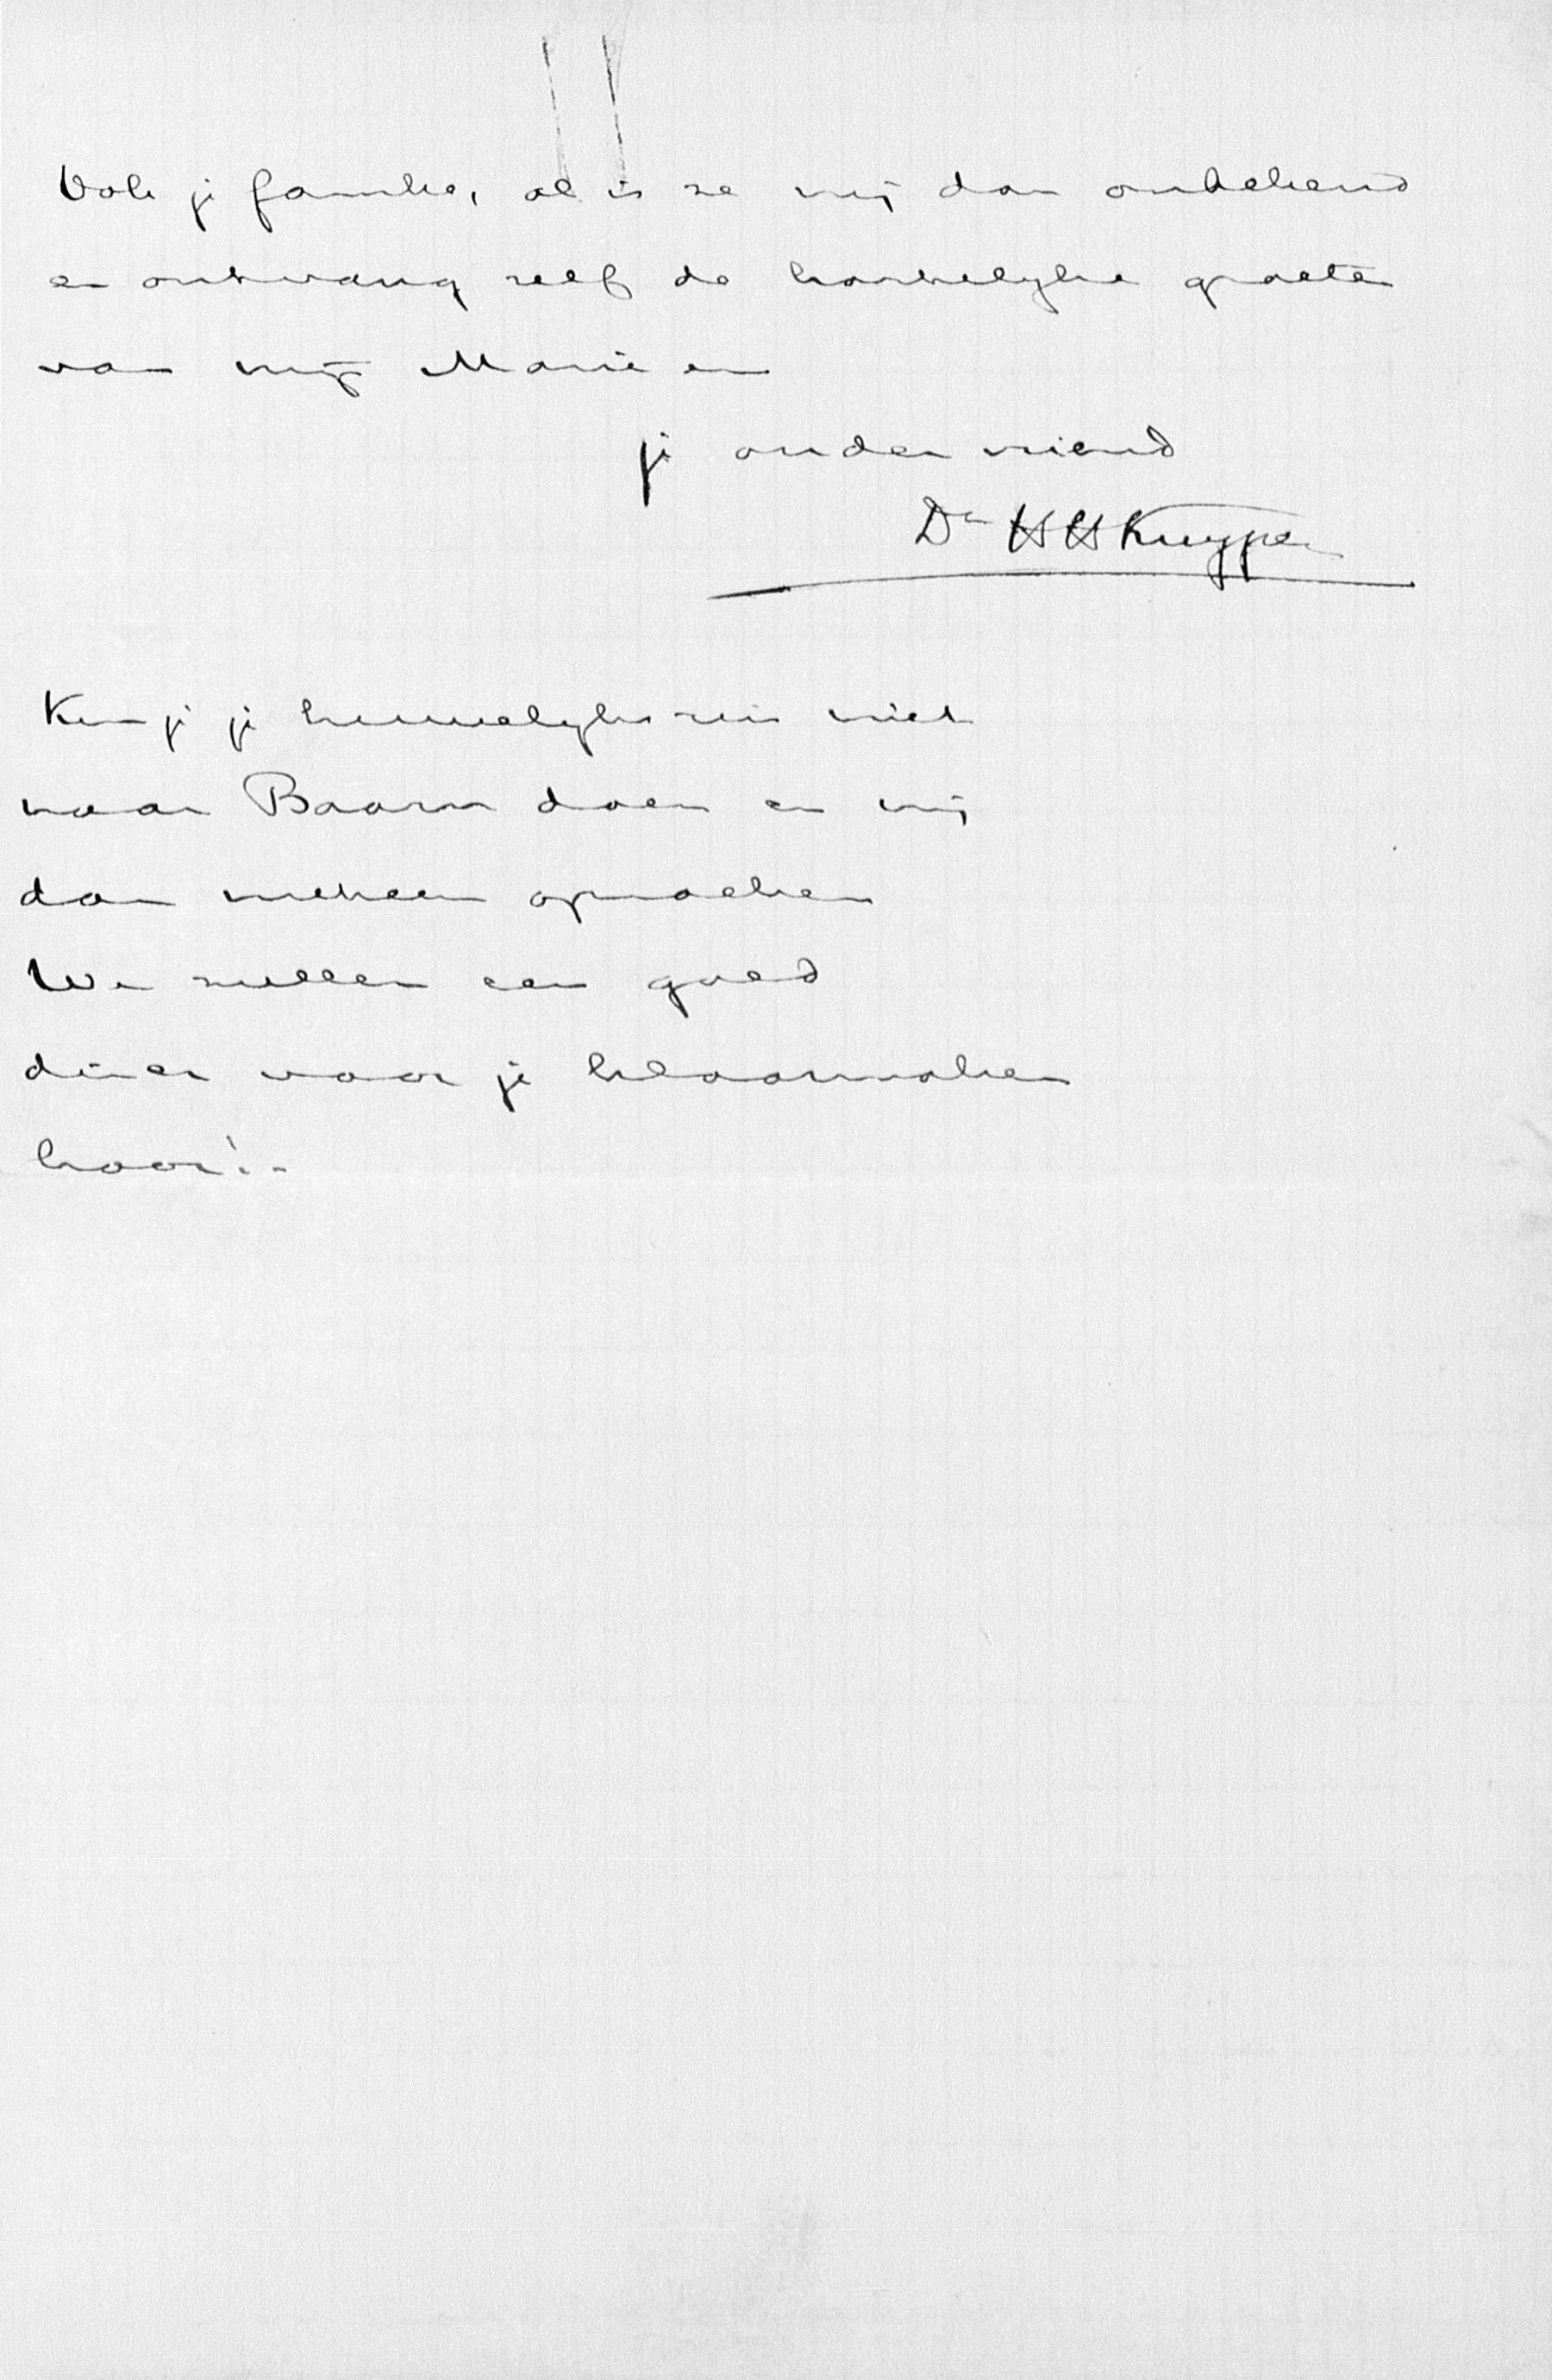 Ook je familie, al is ze mij dan onbekend
en ontvang zelf de hartelijke groeten
van mijn Marie en
je ouden vriend
Dr H H Kuyper
Kun je je huwelijksreis niet
naar Baarn doen en mij
dan meteen opzoeken
We zullen een goed
diner voor je klaarmaken
hoor!-